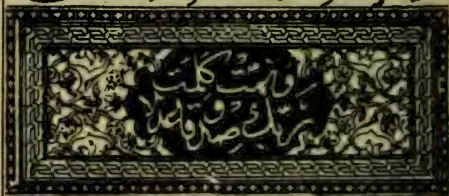 وتمت كلمت
ربك صدقا وعدلا